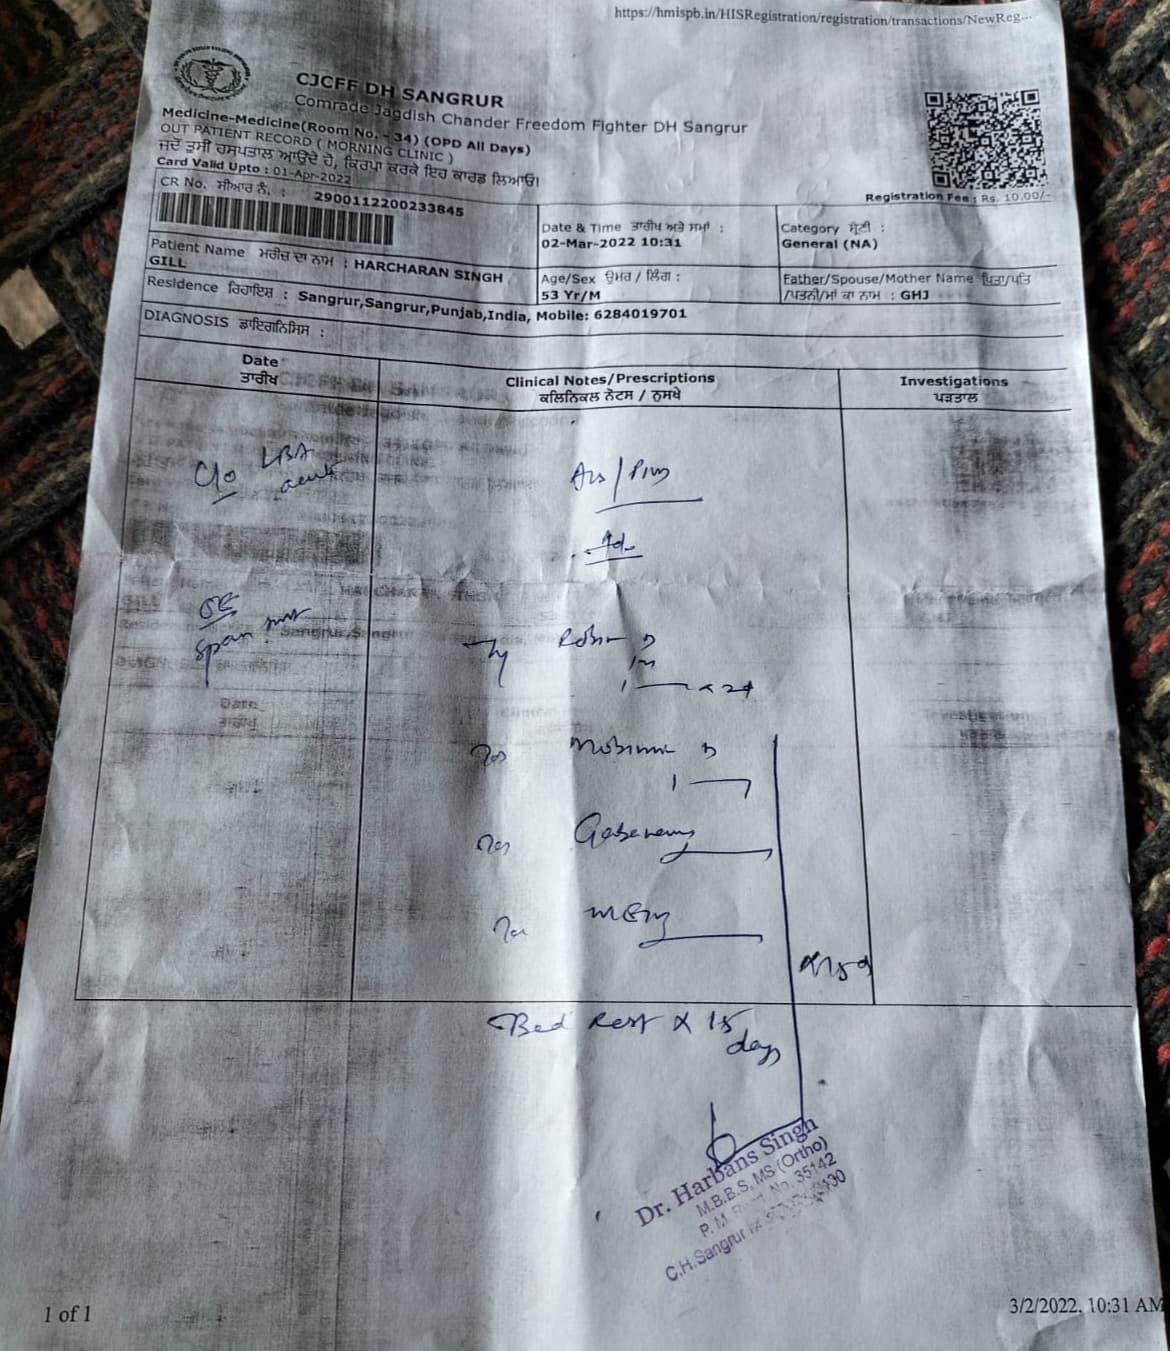 https://hmispb.in/HISRegistration/registration/transactions/NewReg...
CJCFF DH SANGRUR
Comrade Jagdish Chander Freedom Fighter DH Sangrur
Medicine-Medicine(Room No. - 34) (OPD All Days)
OUT PATIENT RECORD ( MORNING CLINIC )
ਜਦੋਂ ਤੁਸੀ ਹਸਪਤਾਲ ਆਉਂਦੇ ਹੋ, ਕਿਰਪਾ ਕਰਕੇ ਇਹ ਕਾਰਡ ਲਿਆਓ।
Card Valid Upto : 01-Apr-2022
Registration Fee : Rs. 10.00/-
CR No. ਸੀਆਰ ਨੰ. : 2900112200233845
Date & Time ਤਾਰੀਖ ਅਤੇ ਸਮਾਂ :
02-Mar-2022 10:31
Category ਸ਼੍ਰੇਣੀ :
General (NA)
Patient Name ਮਰੀਜ਼ ਦਾ ਨਾਮ : HARCHARAN SINGH
GILL
Age/Sex ਉਮਰ / ਲਿੰਗ :
53 Yr/M
Father/Spouse/Mother Name ਪਿਤਾ/ਪਤਿ
/ਪਤਨੀ/ਮਾਂ ਕਾ ਨਾਮ : GHJ
Residence ਰਿਹਾਇਸ਼ : Sangrur,Sangrur,Punjab,India, Mobile: 6284019701
DIAGNOSIS ਡਾਇਗਨਿਸਿਸ :
Date
ਤਾਰੀਖ
Clinical Notes/Prescriptions
ਕਲਿਨਿਕਲ ਨੋਟਸ / ਨੁਸਖੇ
Investigations
ਪੜਤਾਲ
C/o LBA
acute
O/E
Spam
Bed Rest x 15
days
Dr. Harbans Singh
M.B.B.S, MS (Ortho)
No. 35142
C.H.Sangrur
1 of 1
3/2/2022, 10:31 AM